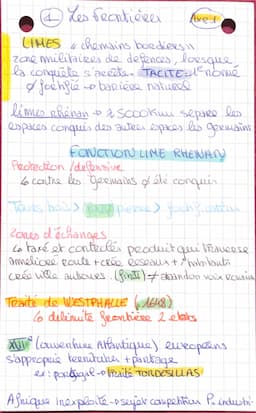 ① Les frontières Axe 1
LIMES « chemins bordiers »
zone militaires de défences, lorsque
la conquête s'arrête. TACITE → nommé
∅ fortifié → barière naturel
Limes rhénan → ≥ 500km sépare les
espaces conquis des autres espaces les germains
FONCTION LIME RHENAN
Protection / défensive
↳ contre les germains ∅ été conquis
Tours bois > pierre > fortification
Zones d'échanges
↳ taxé et contrôlés produit qui traverse
amélioré route + crée réseaux + habitants
crée ville autours. ≠ abandon voix romaine
Traité de WESTPHALIE (1648)
↳ délimite frontière 2 etats
(ouverture Atlantique) européens
s'approprie territoires + partage
ex: portugal → traité TORDESILLAS
Afrique inexploité → sujet compétition P. industri.